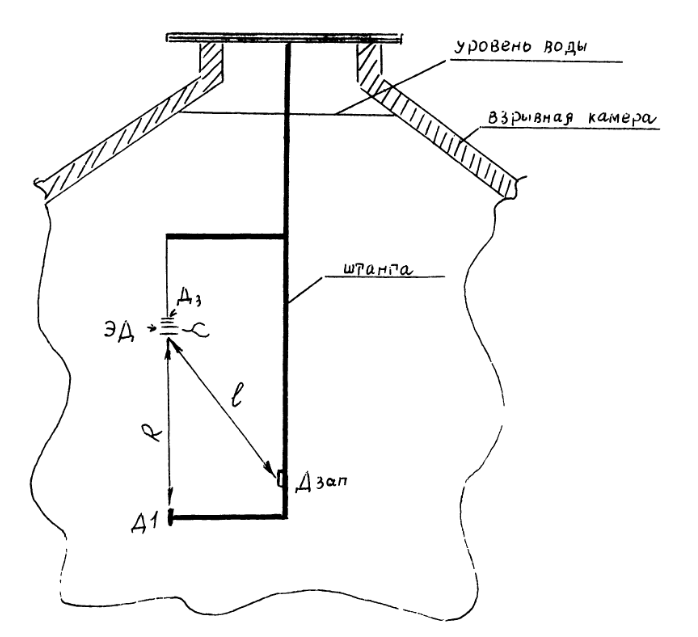 уровень воды
взрывная камера
штанга
Дз
ЭД
R
l
Дзап
Д1